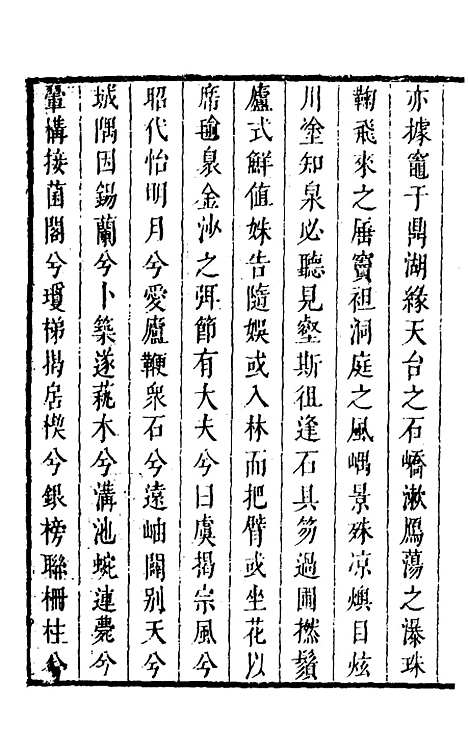 亦據竈于鼎湖緣天台之石嶠漱鴈蕩之瀑珠
鞠飛來之厜竇袒洞庭之風嵎景殊凉燠目炫
川塗知泉必聽見壑斯徂逢石具笏過圃撚鬚
廬式鮮值姝告隨娛或入林而把臂或坐花以
席瑜泉金沙之弭節有大夫兮曰虞揭宗風兮
昭代怡明月兮愛廬鞭衆石兮遠岫闢别天兮
城隅因錫蘭兮卜築遂蓺木兮溝池蜿連甍兮
翬構接菌閣兮瓊梯揭居楔兮銀榜聯柵柱兮